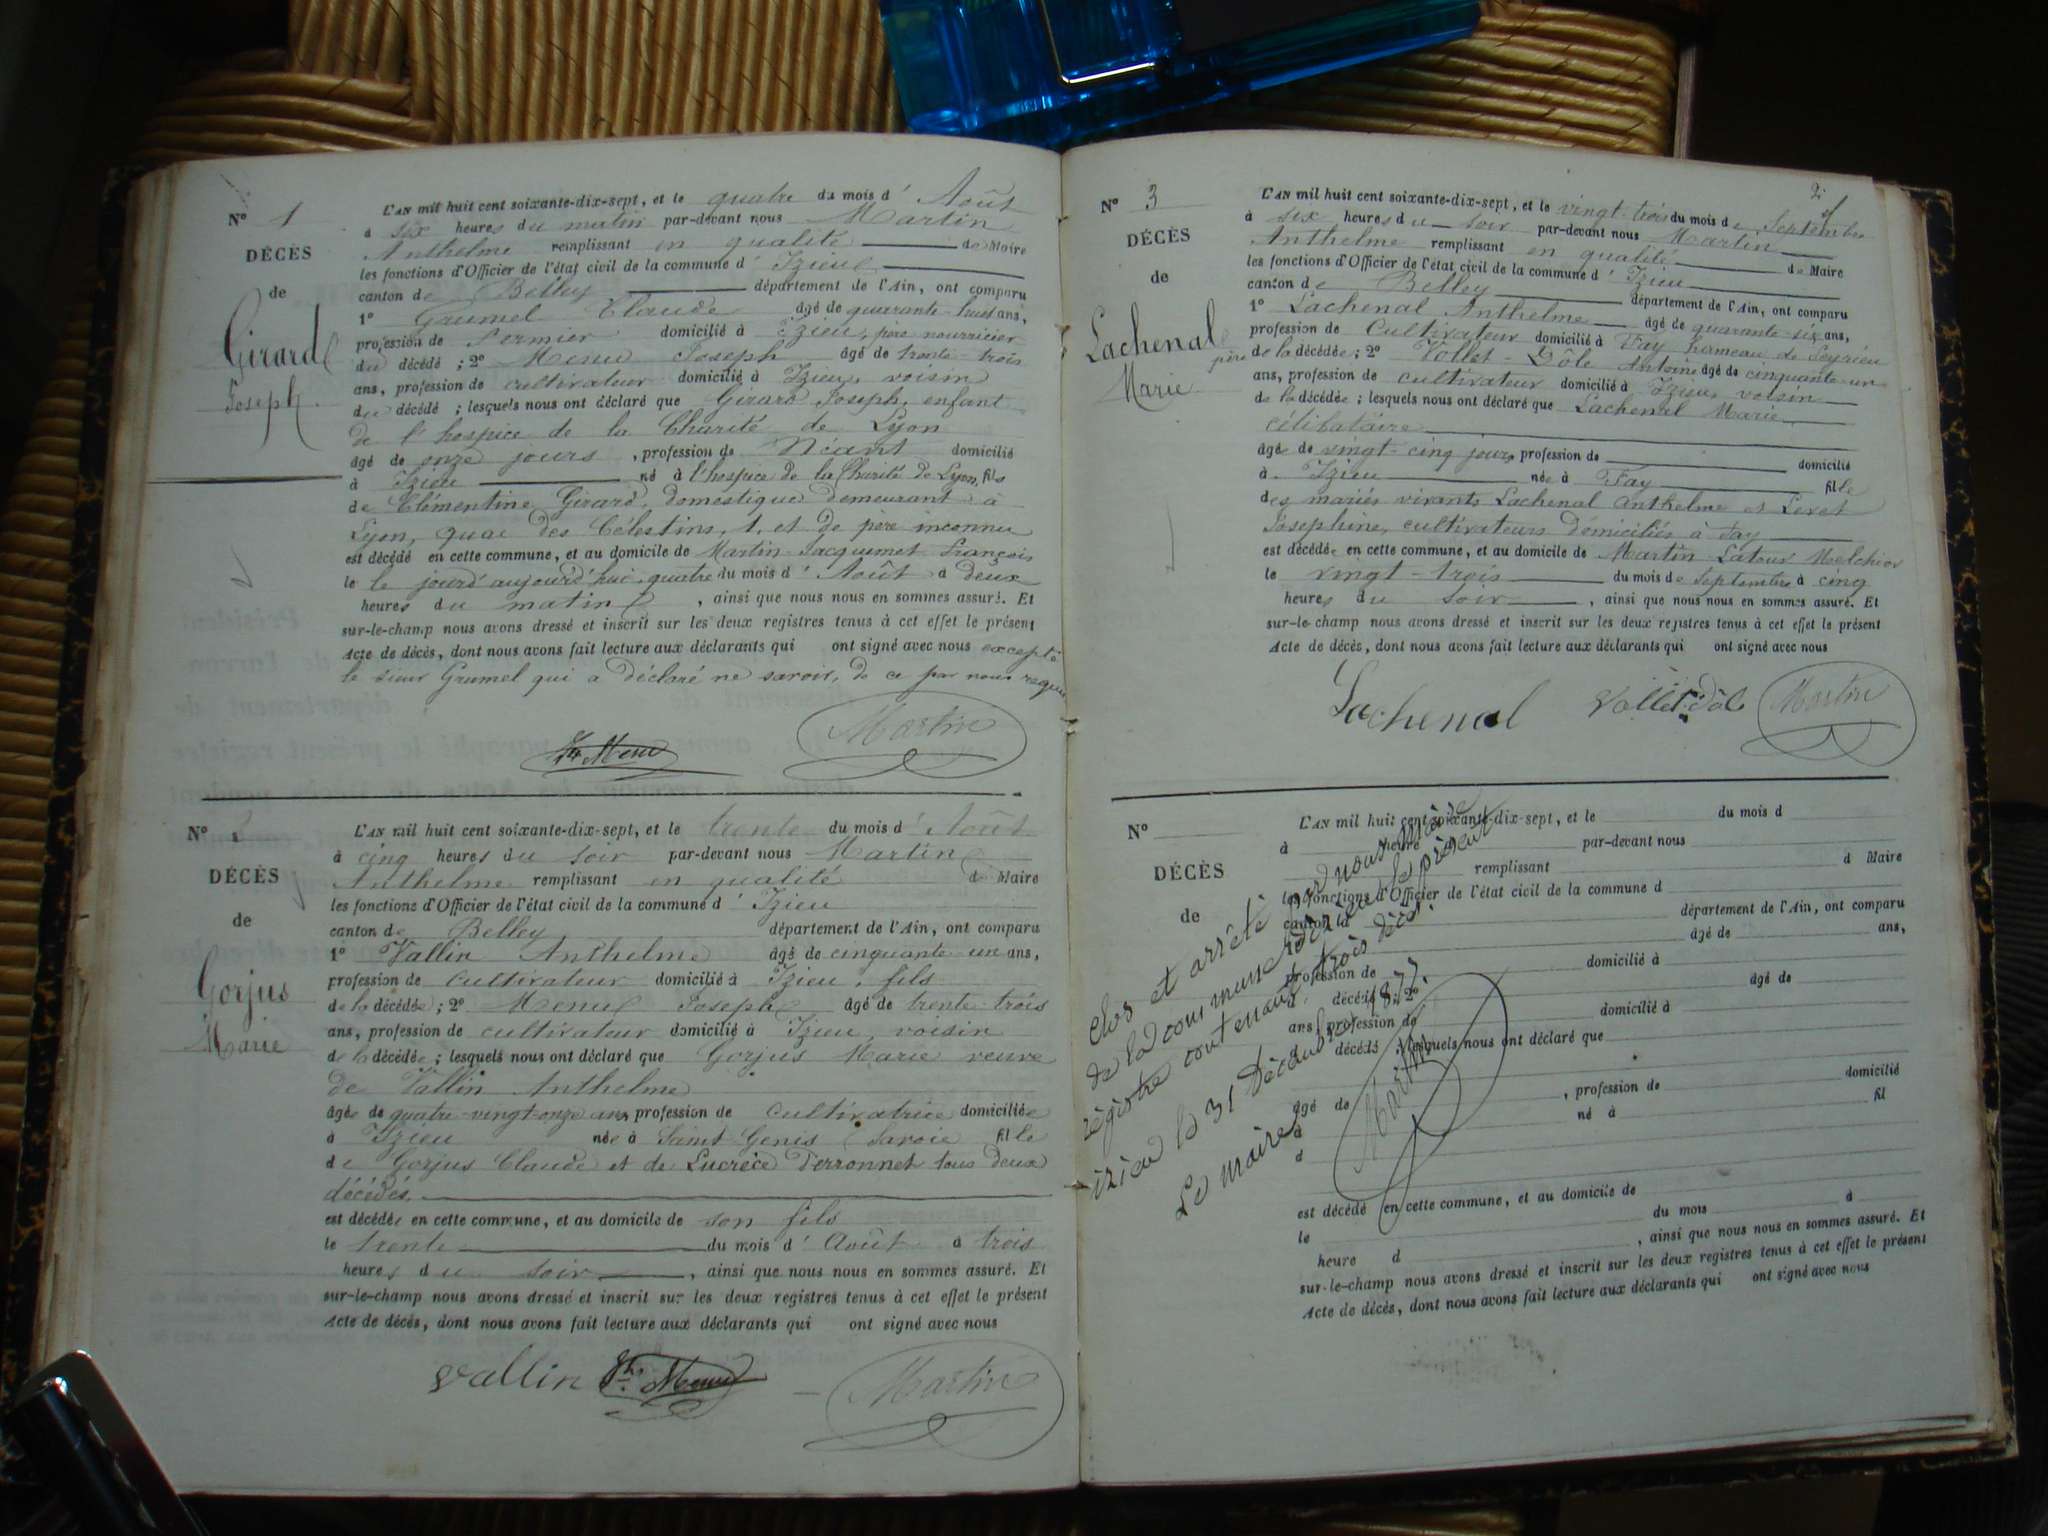 N° 1
DÉCÈS
de
Girard
Joseph
L'AN mil huit cent soixante-dix-sept, et le quatre du mois d' Août
à six heures du matin par-devant nous Martin
Anthelme remplissant en qualité de Maire
les fonctions d'Officier de l'état civil de la commune d' Izieu
canton de Belley département de l'Ain, ont comparu
1° Grumel Claude âgé de quarante-huit ans,
profession de Fermier domicilié à Izieu, père nourricier
du décédé ; 2° Menu Joseph âgé de trente-trois
ans, profession de cultivateur domicilié à Izieu, voisin
du décédé ; lesquels nous ont déclaré que Girard Joseph, enfant
de l'hospice de la Charité de Lyon
âgé de onze jours , profession de Néant domicilié
à Izieu né à l'hospice de la Charité de Lyon, fils
de Clémentine Girard, domestique demeurant à
Lyon, quai des Célestins, 1, et de père inconnu
est décédé en cette commune, et au domicile de Martin-Jacquemet François
le le jour d'aujourd'hui quatre du mois d' Août à deux
heures du matin , ainsi que nous nous en sommes assuré. Et
sur-le-champ nous avons dressé et inscrit sur les deux registres tenus à cet effet le présent
Acte de décès, dont nous avons fait lecture aux déclarants qui ont signé avec nous excepté
le sieur Grumel qui a déclaré ne savoir, de ce par nous requis
Jh Menu Martin
N°
DÉCÈS
de
Gorjus
Marie
L'AN mil huit cent soixante-dix-sept, et le trente du mois d' Août
à cinq heures du soir par-devant nous Martin
Anthelme remplissant en qualité de Maire
les fonctions d'Officier de l'état civil de la commune d' Izieu
canton de Belley département de l'Ain, ont comparu
1° Vallin Anthelme âgé de cinquante-un ans,
profession de cultivateur domicilié à Izieu, fils
de la décédée ; 2° Menu Joseph âgé de trente-trois
ans, profession de cultivateur domicilié à Izieu, voisin
de la décédée ; lesquels nous ont déclaré que Gorjus Marie veuve
de Vallin Anthelme
âgée de quatre-vingt-onze ans, profession de cultivatrice domiciliée
à Izieu née à Saint Genis (Savoie fille
de Gorjus Claude et de Lucrèce Derronnet tous deux
décédés.
est décédée en cette commune, et au domicile de son fils
le trente du mois d' Août à trois
heures du soir , ainsi que nous nous en sommes assuré. Et
sur-le-champ nous avons dressé et inscrit sur les deux registres tenus à cet effet le présent
Acte de décès, dont nous avons fait lecture aux déclarants qui ont signé avec nous
Vallin Jh. Menu Martin
2
N° 3
DÉCÈS
de
Lachenal
Marie
L'AN mil huit cent soixante-dix-sept, et le vingt-trois du mois de Septembre
à six heures du soir par-devant nous Martin
Anthelme remplissant en qualité de Maire
les fonctions d'Officier de l'état civil de la commune d' Izieu
canton de Belley département de l'Ain, ont comparu
1° Lachenal Anthelme âgé de quarante-six ans,
profession de Cultivateur domicilié à Fay hameau de Peyrieu
père de la décédée ; 2° Vollet-Dôle Antoine âgé de cinquante-un
ans, profession de cultivateur domicilié à Izieu, voisin
de la décédée ; lesquels nous ont déclaré que Lachenal Marie
célibataire
âgé de vingt-cinq jours, profession de domicilié
à Izieu née à Fay fille
des mariés vivants Lachenal Anthelme et Levet
Josephine, cultivateurs domiciliés à Fay
est décédée en cette commune, et au domicile de Martin-Latour Melchior
le vingt-trois du mois de septembre à cinq
heures du soir , ainsi que nous nous en sommes assuré. Et
sur-le-champ nous avons dressé et inscrit sur les deux registres tenus à cet effet le présent
Acte de décès, dont nous avons fait lecture aux déclarants qui ont signé avec nous
Lachenal Vollet-Dôle Martin
N°
DÉCÈS
de
L'AN mil huit cent soixante-dix-sept, et le du mois d
à heure par-devant nous
remplissant d Maire
les fonctions d'Officier de l'état civil de la commune d
canton d département de l'Ain, ont comparu
âgé de ans,
profession de domicilié à
d décédé ; 2° âgé de
ans, profession de domicilié à
d décédé ; lesquels nous ont déclaré que
âgé de , profession de domicilié
à né à fil
d
est décédé en cette commune, et au domicile de
le du mois à
heure d , ainsi que nous nous en sommes assuré. Et
sur-le-champ nous avons dressé et inscrit sur les deux registres tenus à cet effet le présent
Acte de décès, dont nous avons fait lecture aux déclarants qui ont signé avec nous
Clos et arrêté par nous Maire
de la commune d'izieu le présent
régistre contenant trois décès.
izieu le 31 Décembre 1877.
Le Maire,
Martin